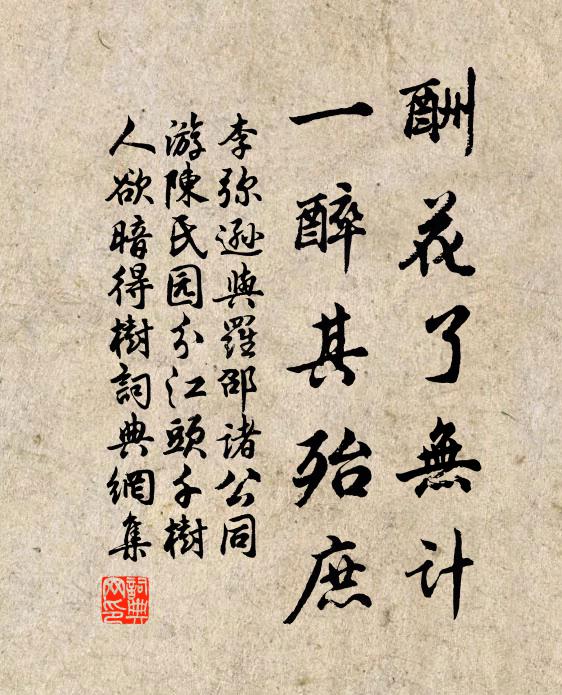 酬花了無計
一醉其殆庶
李弥遜與羅邵諸公同
游陳氏园分江頭千樹
人欲暗得樹詞典網集
詞典网印